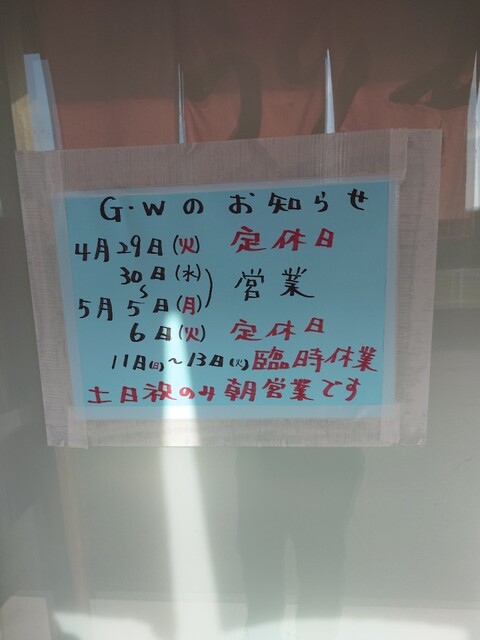 G・Wのお知らせ
4月29日(火) 定休日
30日(水)
〜
営業
5月5日(月)
6日(火) 定休日
11日(日)〜13日(火)臨時休業
土日祝のみ朝営業です